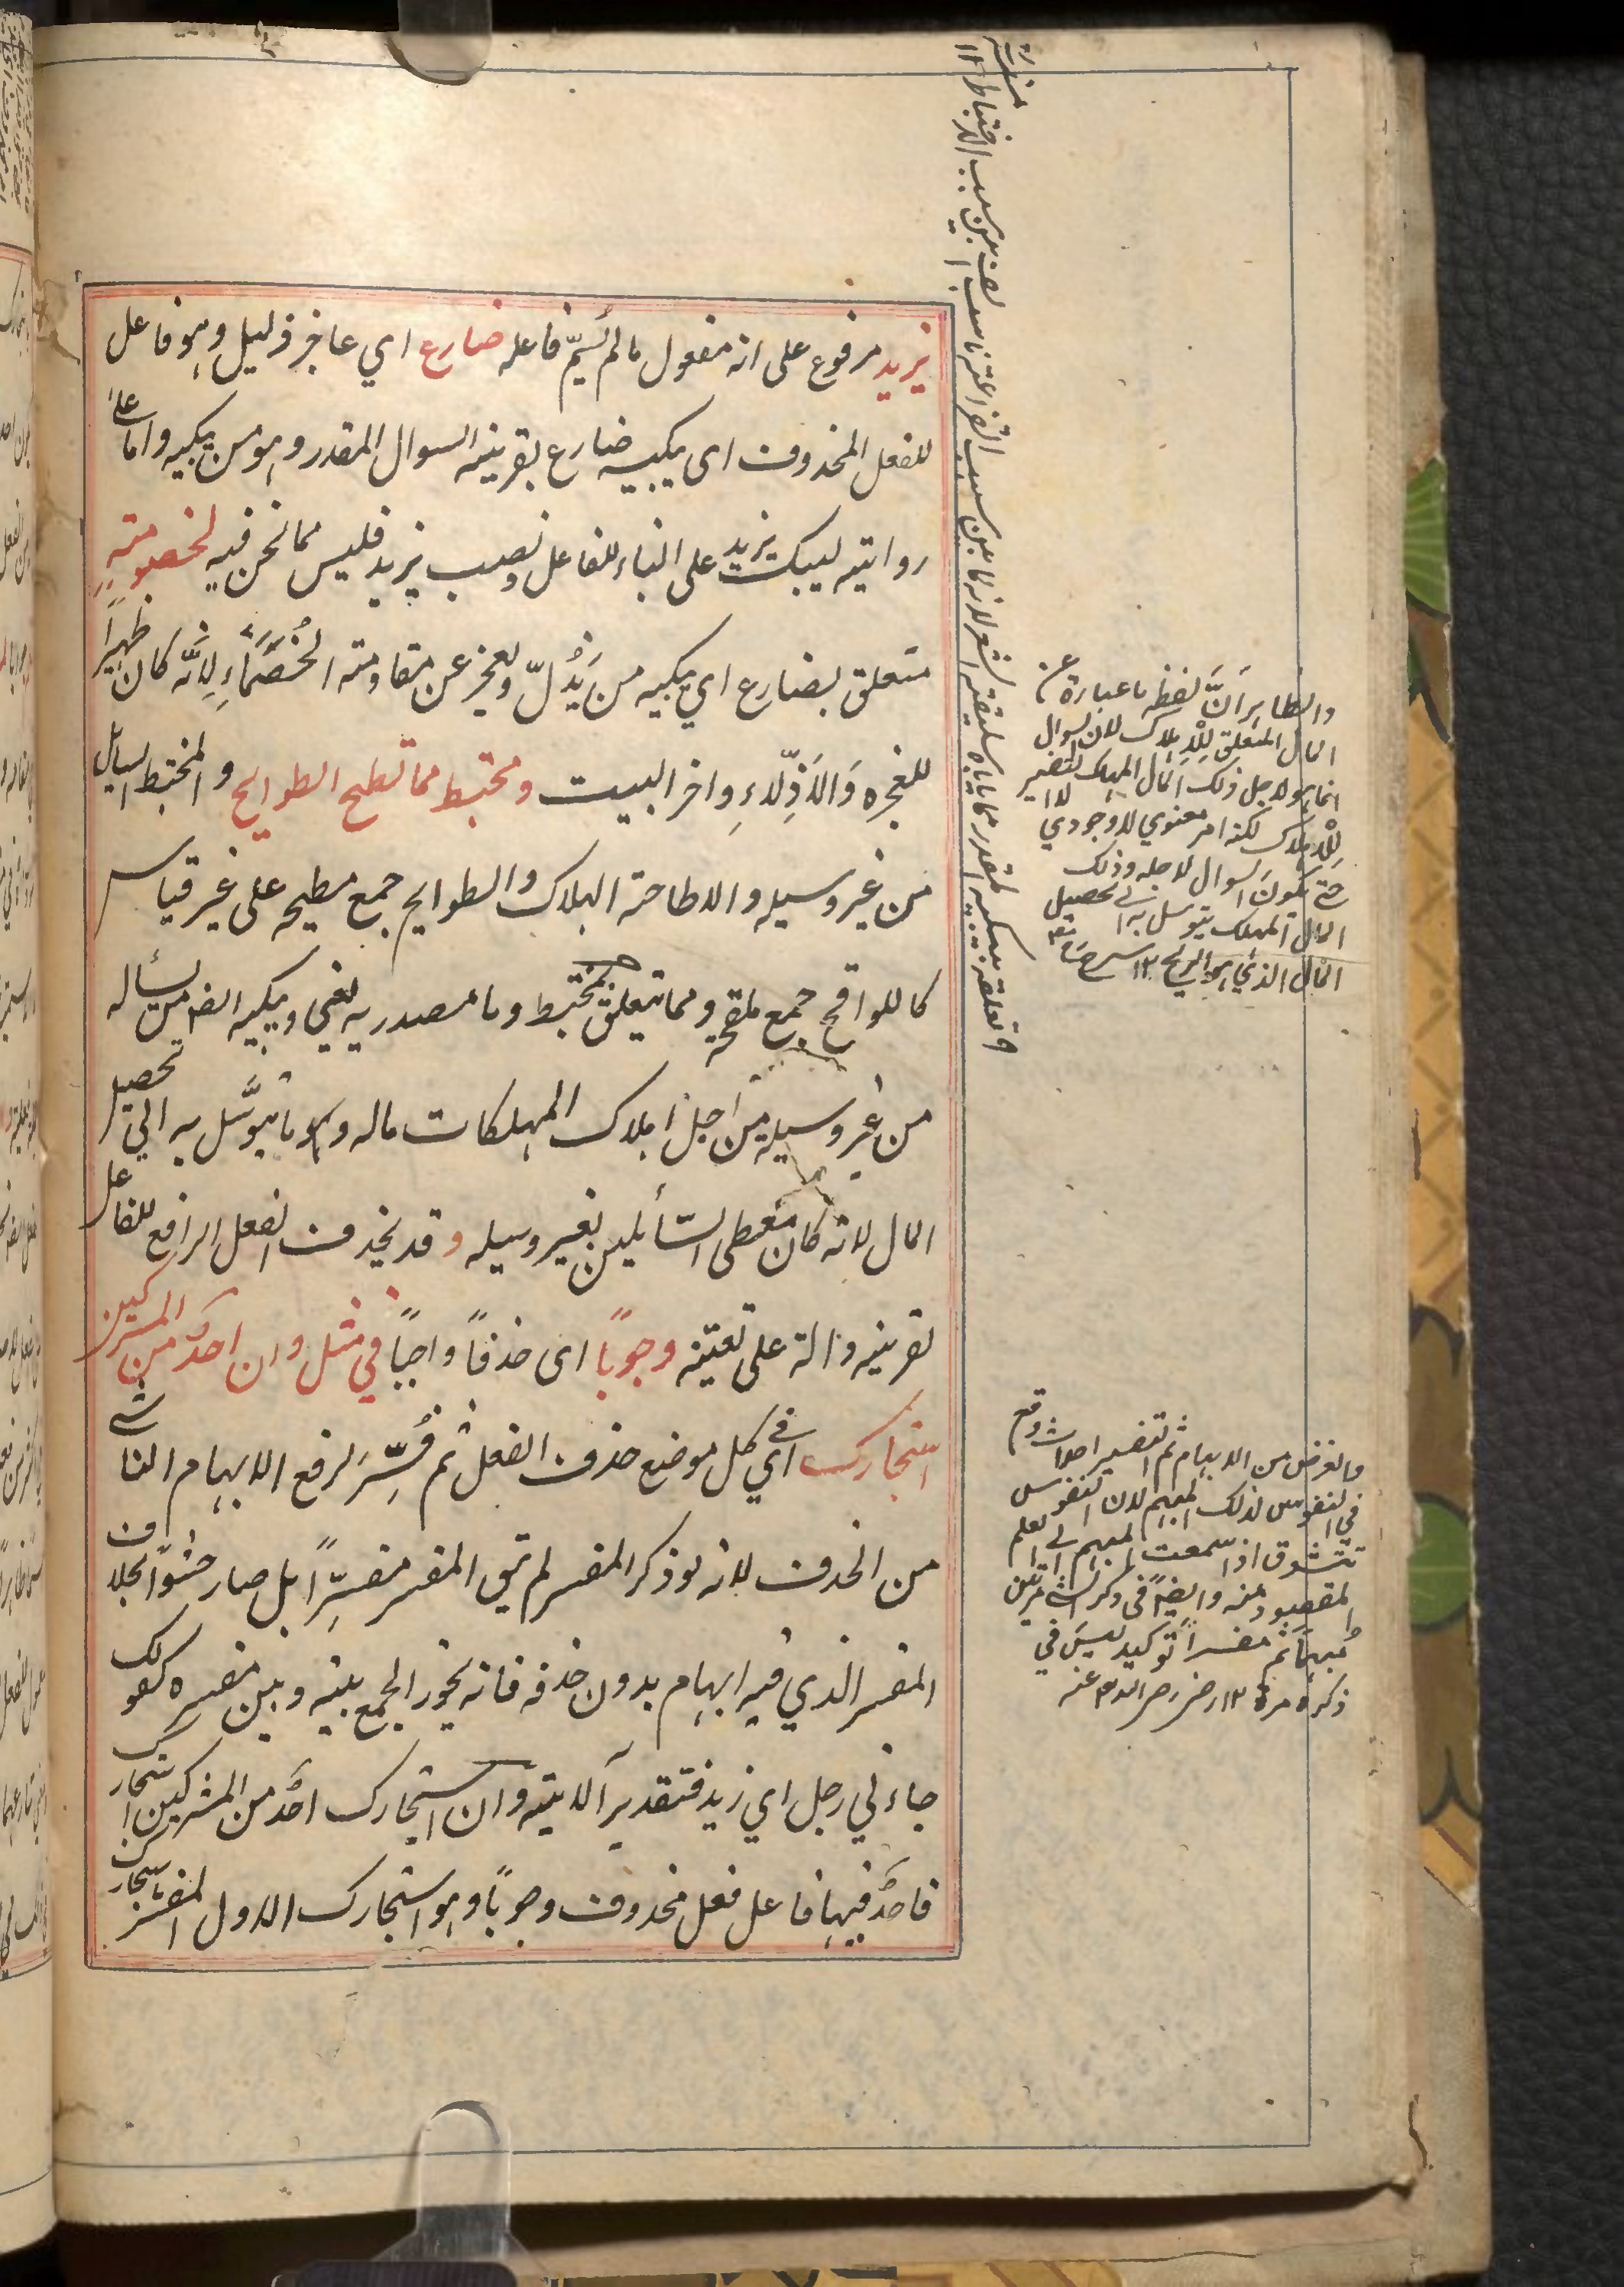 يزيد مرفوع على انه مفعول ما لم يُسَمّ فاعله ضارع اي عاجز ذليل وهو فاعل
للفعل المحذوف اى يبكيه ضارع بقرينة السوال المقدر وهو من يبكيه واما على
رواية ليبك يزيد على البناء للفاعل ونصب يزيد فليس مما نحن فيه لخصومةٍ
متعلق بضارع اي يبكيه من يَذُلّ ويعجز عن مقاومة الخُصَمَاءِ لِاَنَّه كان ظهيرًا
للعجزه وَالاَذِلّاءِ واخر البيت ومختبط مما تطيح الطوايح و المختبط السايل
من غير وسيله والاطاحة الهلاك والطوايح جمع مطيحه على غير قياس
كاللواقح جمع ملقحه ومما يتعلق بمختبط وما مصدريه يعني ويبكيه ايضا من يسأله
من غير وسيله من اجل اهلاك المهلكات ماله وهو ما يتوسَّل به الى تحصيل
المال لانه كان معطى السّائلين بغير وسيله وقد يحذف الفعل الرافع للفاعل
لقرينه دالة على تعيينه وجوبًا اى حذفًا واجبًا في مثل وان احدٌ من المشركين
استجارك اي في كل موضع حذف الفعل ثم فُسِّرَ لرفع الابهام الناشى
من الحذف لانه لو ذكر المفسر لم يبق المفسر مفسِّرًا بل صار حشوًا بخلاف
المفسر الذي فيه ابهام بدون حذفه فانه يجوز الجمع بينه وبين مفسره كقولك
جاءني رجل اي زيد فتقدير الاية وان استجارك احدٌ من المشركين استجارك
فاحدٌ فيها فاعل فعل محذوف وجوبًا وهو استجارك الاول المفسر باستجارك
والظاهر اَنَّ لفظه ما عبارة عن
المال المتعلق لِلْاِهلاك لان السوال
انما هو لاجل ذلك المال المهلك لتضير
لِلْاِهلاك لكنه امر معنوي لا وجودي
حتى يكون السوال لاجله وذلك
المال المهلك يتوسل به الى تحصيل
المال الذي هو الربح ١٢
والغرض من الابهام ثم التفسير احداث وقع
في النفوس لذلك المبهم لان النفوس
تتشوق اذا سمعت المبهم الى العلم
المقصود منه وايضًا في ذكر الشي مرتين
مُبهمًا ثم مفسرًا توكيد ليسَ في
ذكره مرة ١٢